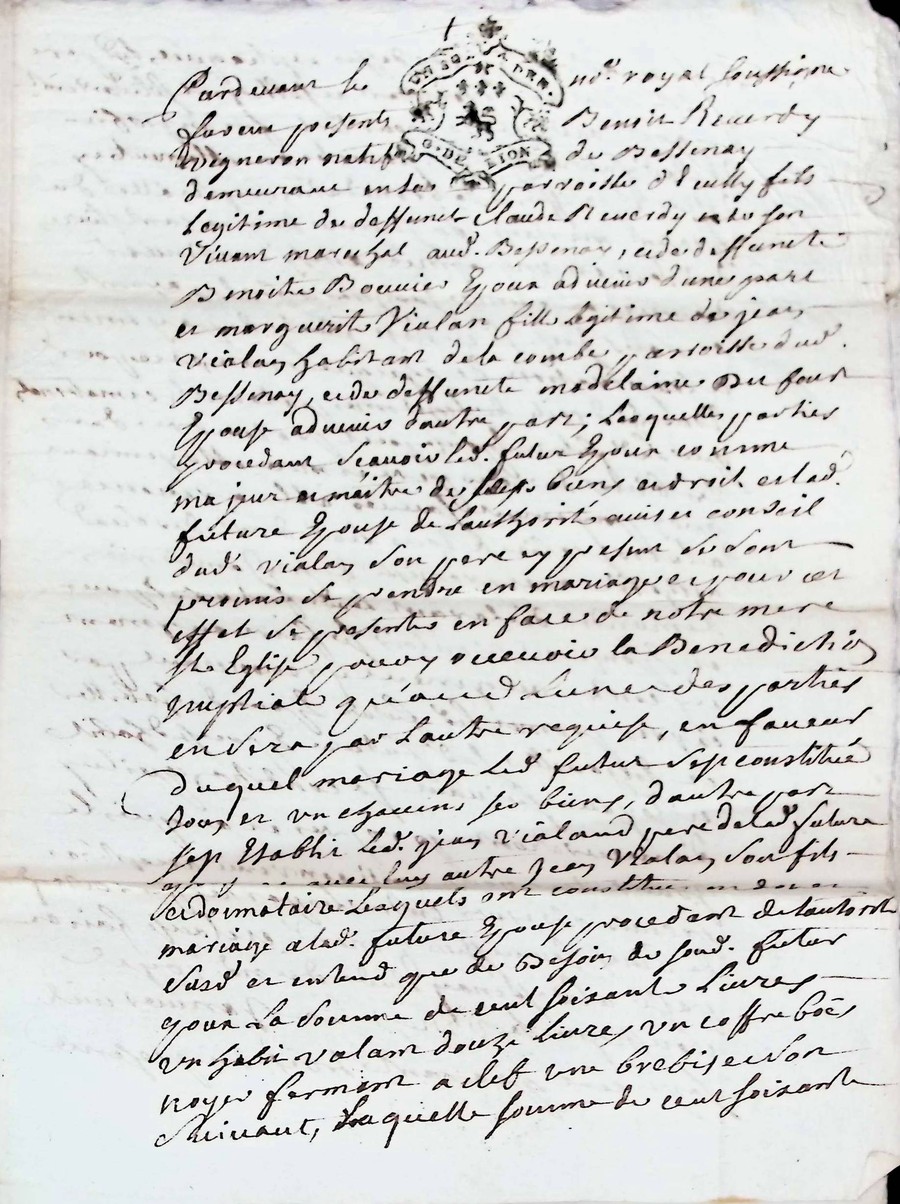 Pardevant le no.re royal soussigne
furent presents Benoit Reverdy
vigneron natif de Bessenay
demeurant en la parroisse d'Eully fils
legitime de deffunct Claude Reverdy en son
vivant marechal aud. Bessenay, et de deffuncte
Benoite Bouvier Epoux advenir d'une part
et marguerite Vialan fille legitime de jean
vialan habitant de la combe parroisse dud.
Bessenay, et de deffuncte madelaine Du four
Epouse advenir d'autre part; Lesquelles parties
procedant scavoir led. futur Epoux comme
majeur et maitre de ses biens et droit et lad.
future Epouse de l'authorité avis et conseil
dud. vialan son pere cy present se sont
promis se prendre en mariage et pour cet
effet se presenter en face de notre mere
Ste Eglise pour y recevoir la Benediction
nuptiale quand L'une des parties
en sera par L'autre requise, en faveur
duquel mariage Led. futur s'est constitué
tous et un chacuns ses biens, d'autre part
s'est Etabli Led. jean vialand pere de lad. future
et avec luy autre Jean Vialan son fils
et donnataire Lesquels ont constitué en
mariage a lad. future Epouse procedant de l'autorité
susd. et entend que de Besoin de sond. futur
Epoux La somme de cent soixante Livres
un habit valant douze Livres, un coffre bois
noyer fermant a clef une brebis et son
suivant, Laquelle somme de cent soixante